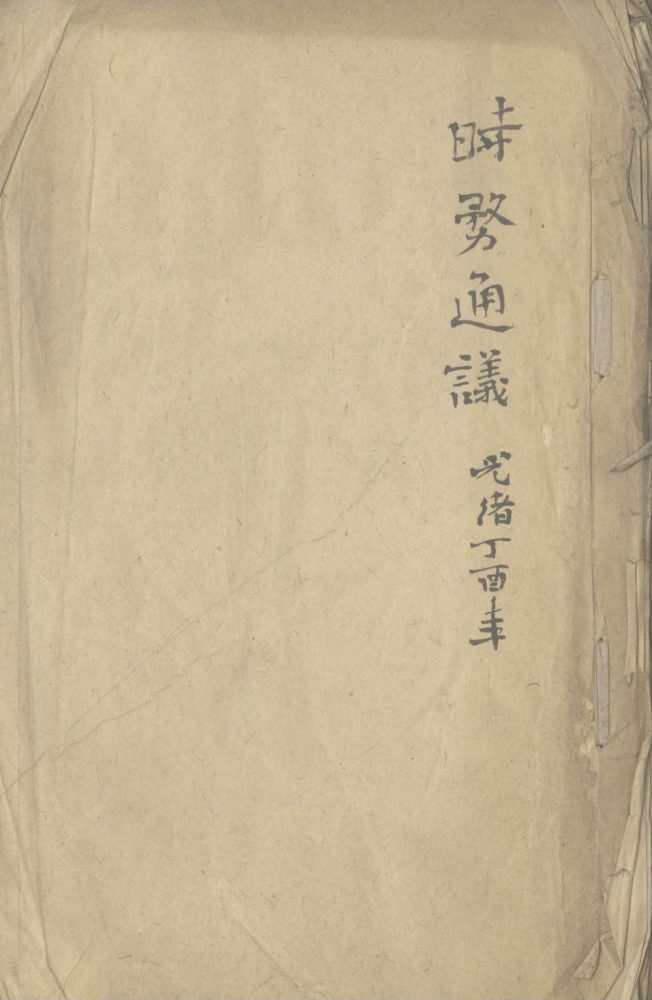 時務通議 光緒丁酉年